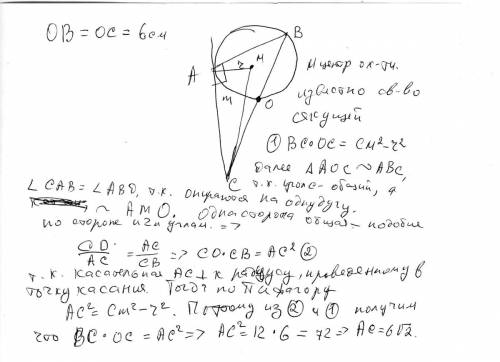 OB = OC = 6см
B
A
M
r
m
O
C
M центр ок-ти.
известно св-во
секущей
① BC·OC = CM²-r²
далее ΔAOC ~ ABC,
т.к. угол C - общий, а
∠CAB = ∠ABO, т.к. опираются на одну дугу.
~ AMO. Одна сторона общая - подобия
по стороне и 2м углам. =>
CO / AC = AC / CB => CO·CB = AC² ②
т.к. касательная AC ⊥ к радиусу, проведенному в
точку касания. Тогда по Пифагору
AC² = CM² - r². Поэтому из ② и ① получим
что BC·OC = AC² => AC² = 12·6 = 72 => AC = 6√2.